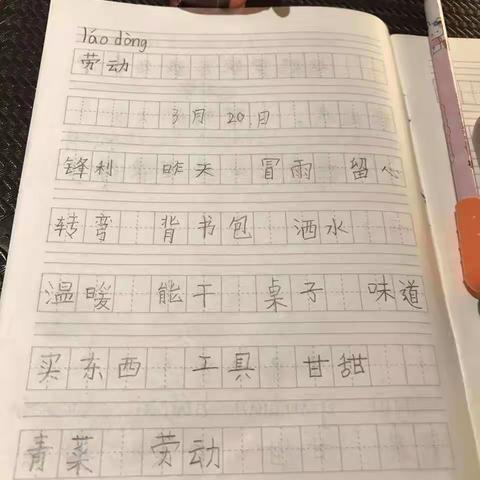 láo dòng
劳动
3月20日
锋利 昨天 冒雨 留心
转弯 背书包 洒水
温暖 能干 桌子 味道
买东西 工具 甘甜
青菜 劳动